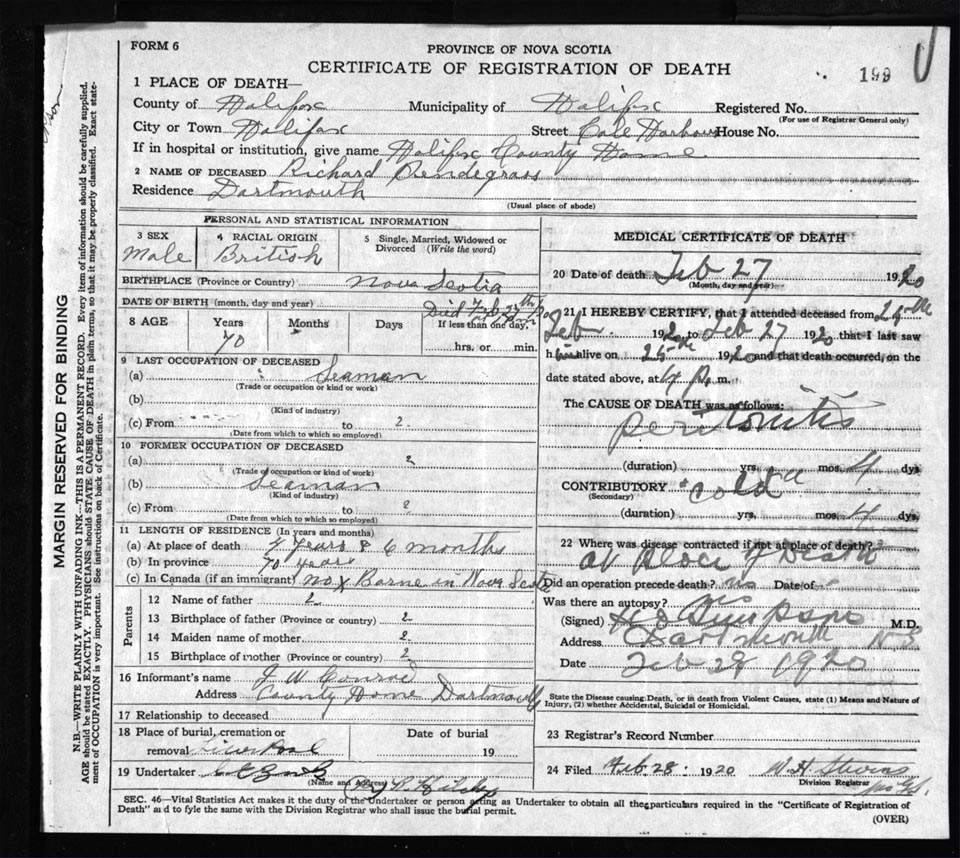 FORM 6
PROVINCE OF NOVA SCOTIA
CERTIFICATE OF REGISTRATION OF DEATH
199
1 PLACE OF DEATH—
County of Halifax Municipality of Halifax Registered No.
(For use of Registrar General only)
City or Town Halifax Street Cole Harbour House No.
If in hospital or institution, give name Halifax County Home
2 NAME OF DECEASED Richard Pendegrass
Residence Dartmouth
(Usual place of abode)
PERSONAL AND STATISTICAL INFORMATION
3 SEX
Male
4 RACIAL ORIGIN
British
5 Single, Married, Widowed or
Divorced (Write the word)
BIRTHPLACE (Province or Country) Nova Scotia
DATE OF BIRTH (month, day and year) Died Feb 27th
8 AGE Years Months Days If less than one day,
70
hrs. or min.
9 LAST OCCUPATION OF DECEASED
(a) Seaman
(Trade or occupation or kind or work)
(b)
(Kind of industry)
(c) From to ?
(Date from which to which so employed)
10 FORMER OCCUPATION OF DECEASED
(a) ?
(Trade of occupation or kind of work)
(b) Seaman
(Kind of industry)
(c) From to ?
(Date from which to which so employed)
11 LENGTH OF RESIDENCE (In years and months)
(a) At place of death years & 6 months
(b) In province 70 years
(c) In Canada (if an immigrant) no x Borne in Nova Scotia
Parents
12 Name of father ?
13 Birthplace of father (Province or country) ?
14 Maiden name of mother ?
15 Birthplace of mother (Province or country) ?
16 Informant's name J W Conrod
Address County Home Dartmouth
17 Relationship to deceased
18 Place of burial, cremation or
removal
Date of burial
19
19 Undertaker
(Name and Address)
MEDICAL CERTIFICATE OF DEATH
20 Date of death Feb 27 1920
(Month, day and year)
21 I HEREBY CERTIFY, that I attended deceased from 24th
Feb 1920 to Feb 27 1920 that I last saw
him alive on 25th 1920 and that death occurred, on the
date stated above, at 4 p. m.
The CAUSE OF DEATH was as follows:
peritonitis
(duration) yrs. mos. 4 dys
CONTRIBUTORY "cold"
(Secondary)
(duration) yrs. mos. 4 dys.
22 Where was disease contracted if not at place of death?
at place of Death
Did an operation precede death? no Date of
Was there an autopsy? no
(Signed) Simpson M.D.
Address Dartmouth N S
Date Feb 28 1920
State the Disease causing Death, or in death from Violent Causes, state (1) Means and Nature of
Injury, (2) whether Accidental, Suicidal or Homicidal.
23 Registrar's Record Number
24 Filed Feb 28 1920 W H Stevens
Division Registrar
SEC. 46—Vital Statistics Act makes it the duty of the Undertaker or person acting as Undertaker to obtain all the particulars required in the "Certificate of Registration of
Death" and to fyle the same with the Division Registrar who shall issue the burial permit.
(OVER)
MARGIN RESERVED FOR BINDING
N.B.—WRITE PLAINLY WITH UNFADING INK—THIS IS A PERMANENT RECORD. Every item of information should be carefully supplied.
AGE should be stated EXACTLY. PHYSICIANS should STATE CAUSE OF DEATH in plain terms, so that it may be properly classified. Exact state-
ment of OCCUPATION is very important. See instructions on back of Certificate.